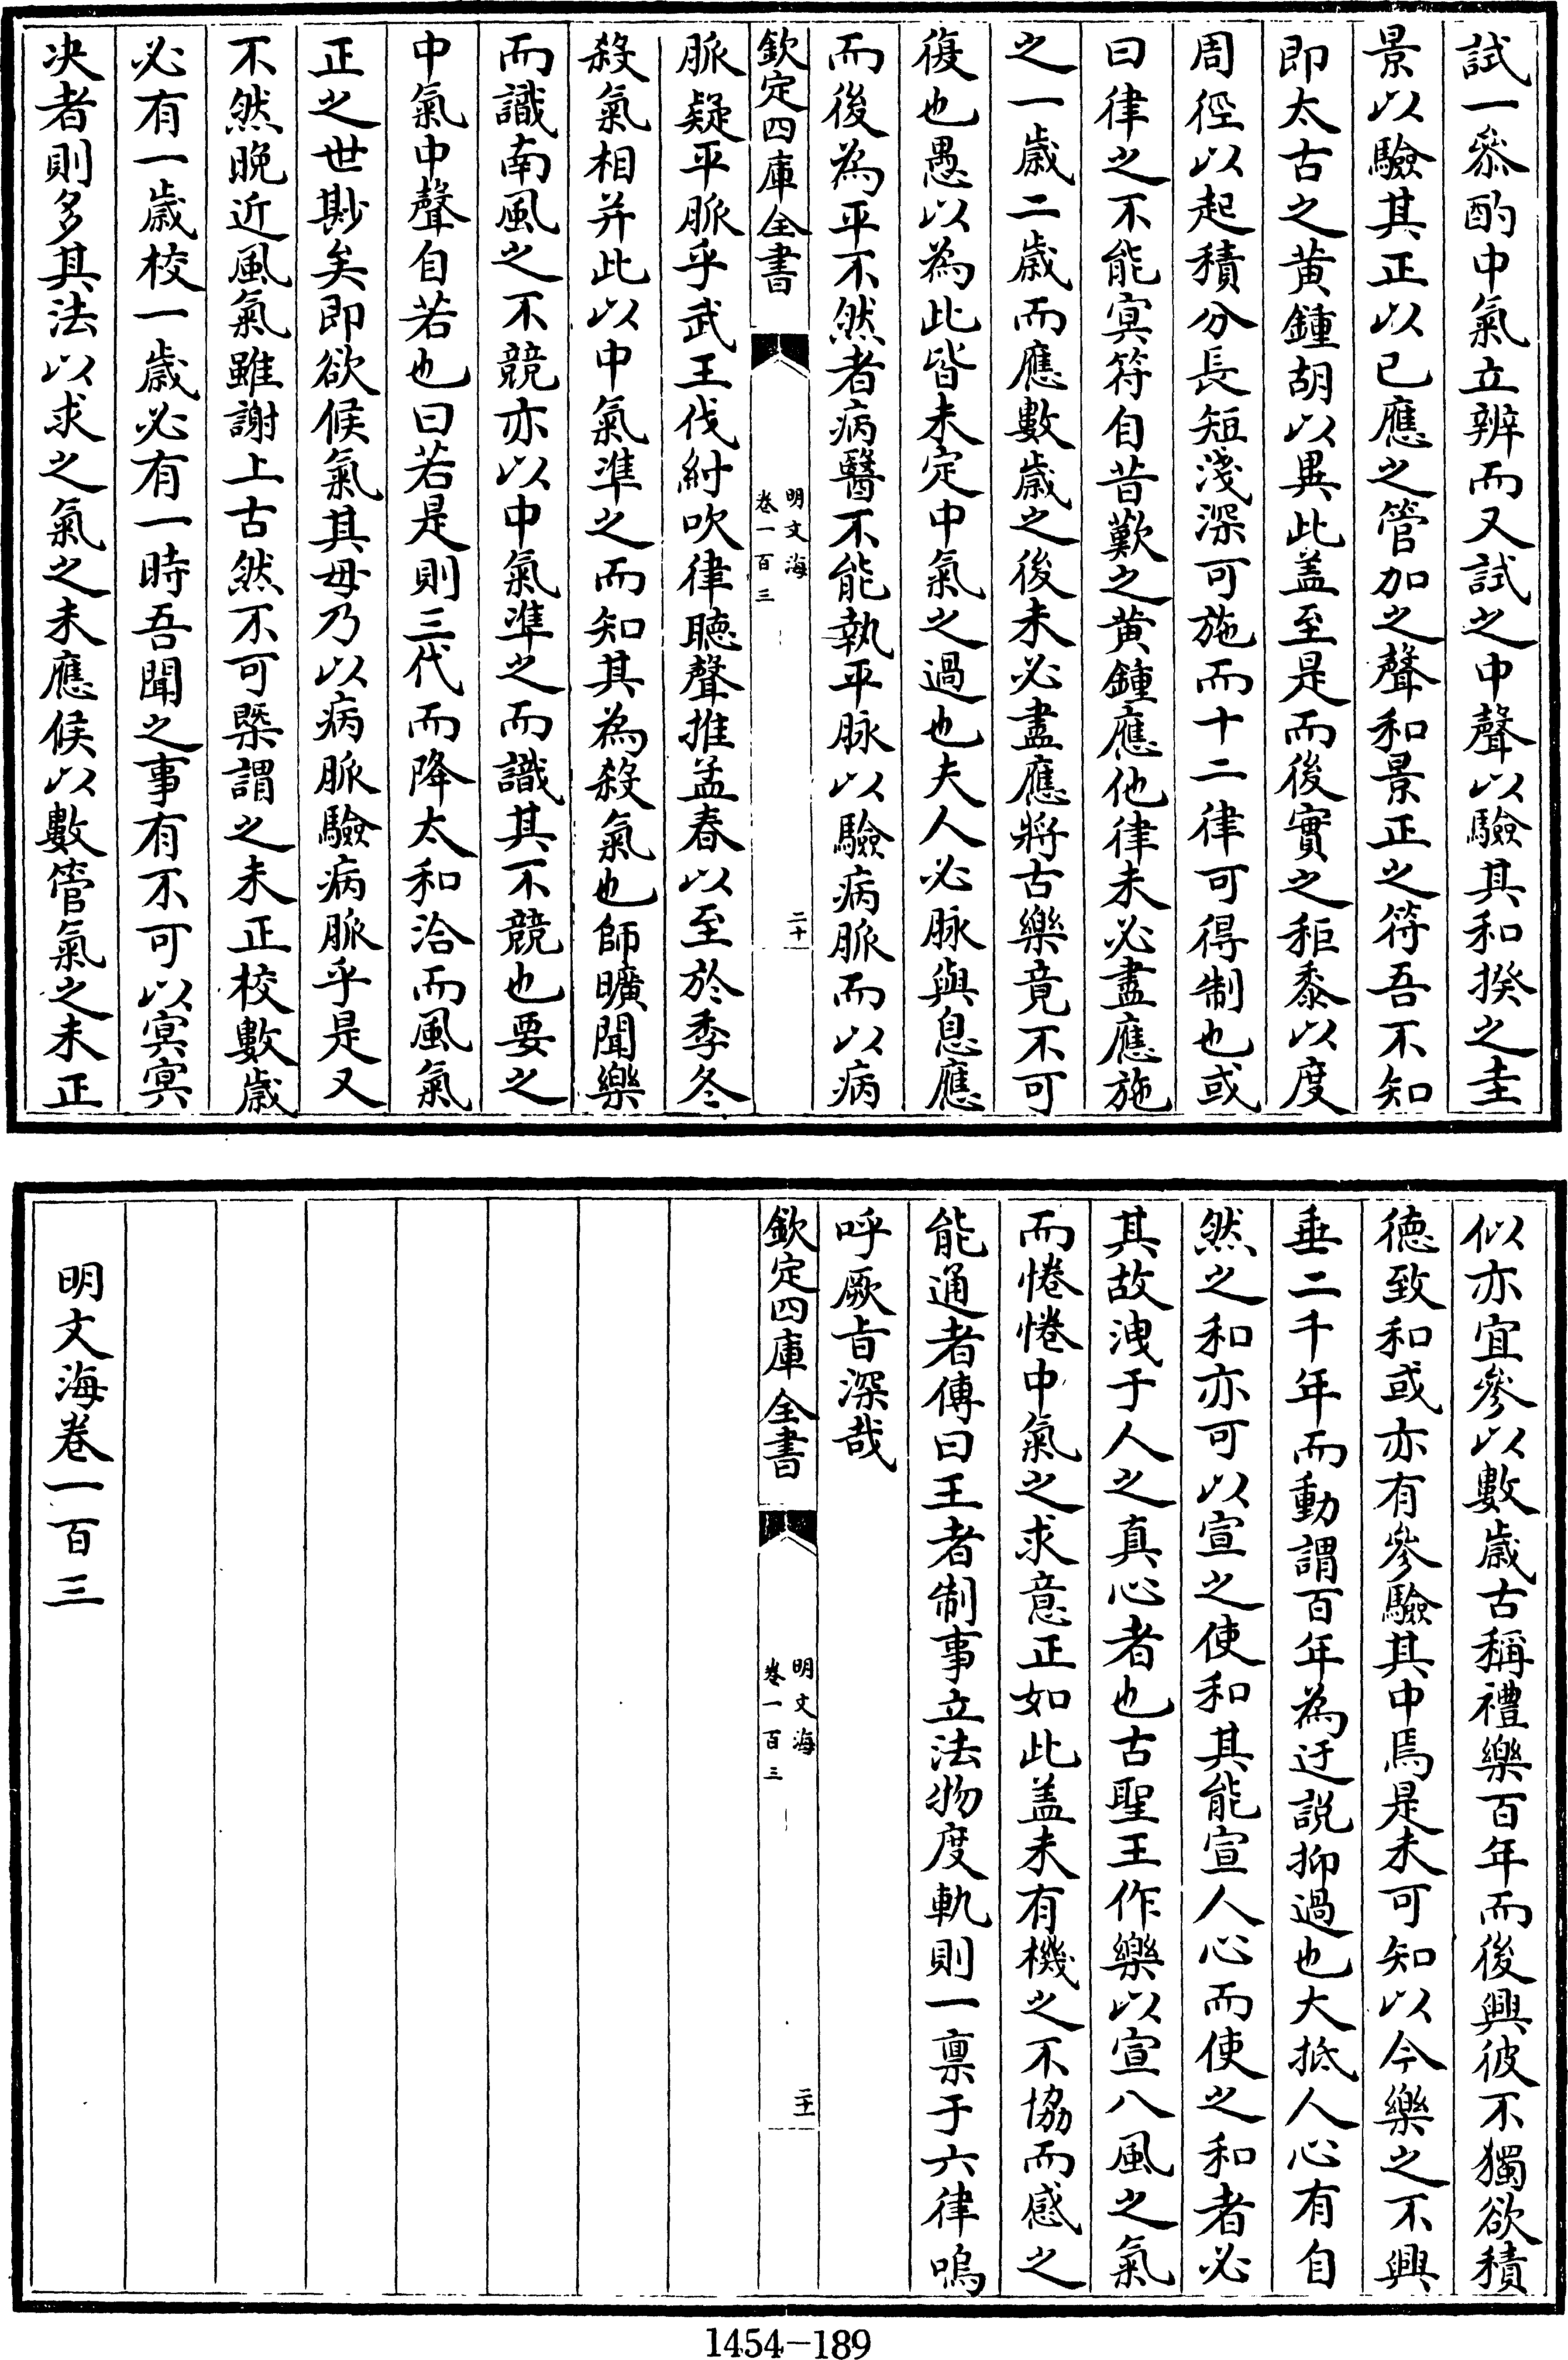 試一叅酌中氣立辨而又試之中聲以驗其和揆之圭
景以驗其正以已應之管加之聲和景正之符吾不知
即太古之黄鍾胡以異此盖至是而後實之秬黍以度
周徑以起積分長短淺深可施而十二律可得制也或
曰律之不能㝠符自昔歎之黄鍾應他律未必盡應施
之一歳二歳而應數歳之後未必盡應將古樂竟不可
復也愚以為此皆未定中氣之過也夫人必脉與息應
而後為平不然者病醫不能執平脉以驗病脈而以病
欽定四庫全書
明文海
卷一百三
二十
脈疑平脈乎武王伐紂吹律聽聲推孟春以至於季冬
殺氣相并此以中氣凖之而知其為殺氣也師曠聞樂
而識南風之不競亦以中氣凖之而識其不競也要之
中氣中聲自若也曰若是則三代而降太和洽而風氣
正之世尠矣即欲候氣其毋乃以病脈驗病脈乎是又
不然晩近風氣雖謝上古然不可槩謂之未正校數歳
必有一歳校一歳必有一時吾聞之事有不可以㝠㝠
决者則多其法以求之氣之未應候以數管氣之未正
似亦宜參以數歳古稱禮樂百年而後興彼不獨欲積
德致和或亦有參驗其中焉是未可知以今樂之不興
垂二千年而動謂百年為迂說抑過也大抵人心有自
然之和亦可以宣之使和其能宣人心而使之和者必
其故洩于人之真心者也古聖王作樂以宣八風之氣
而惓惓中氣之求意正如此盖未有機之不協而感之
能通者傳曰王者制事立法物度軌則一禀于六律嗚
呼厥㫖深哉
欽定四庫全書
明文海
卷一百三
二十一
明文海卷一百三
1454-189